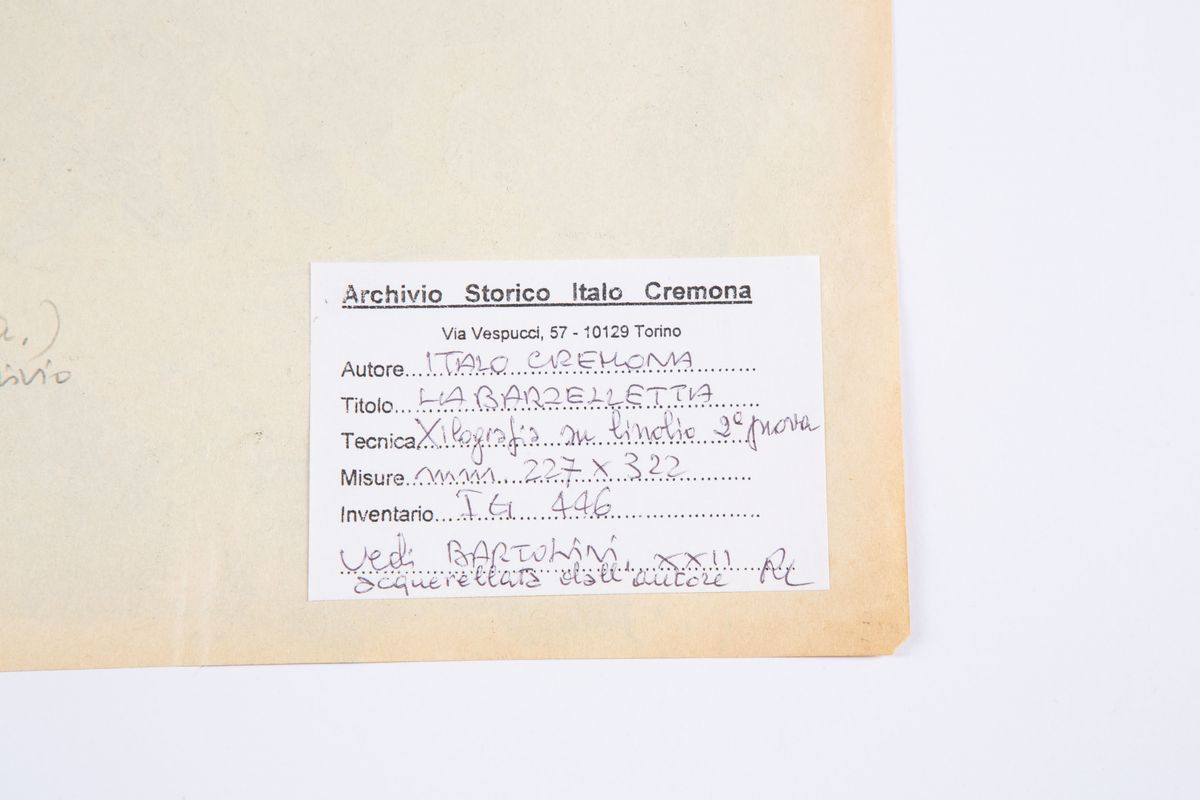 Archivio Storico Italo Cremona
Via Vespucci, 57 - 10129 Torino
Autore...ITALO CREMONA
Titolo...LA BARZELLETTA
Tecnica Xilografia su linolio 2ª prova
Misure...mm 227 x 322
Inventario...IG 446
Vedi BARTOLINI, XXII
acquerellata dall'autore